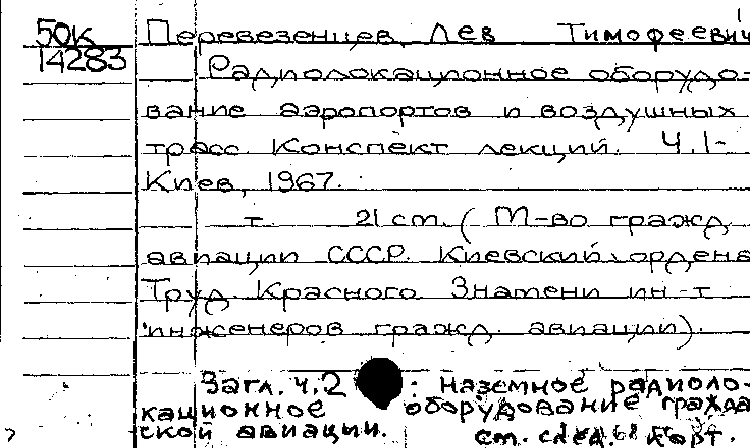 50к Перевезенцев, Лев Тимофеевич
14283 Радиолокационное оборудо-
вание аэропортов и воздушных
трасс. Конспект лекций. Ч.1-
Киев, 1967.
т. 21 см. (М-во гражд.
авиации СССР. Киевский ордена
Труд. Красного Знамени ин-т
инженеров гражд. авиации).
Загл. ч.2 : наземное радиоло-
кационное оборудование гражда
ской авиации. см. след. карт.